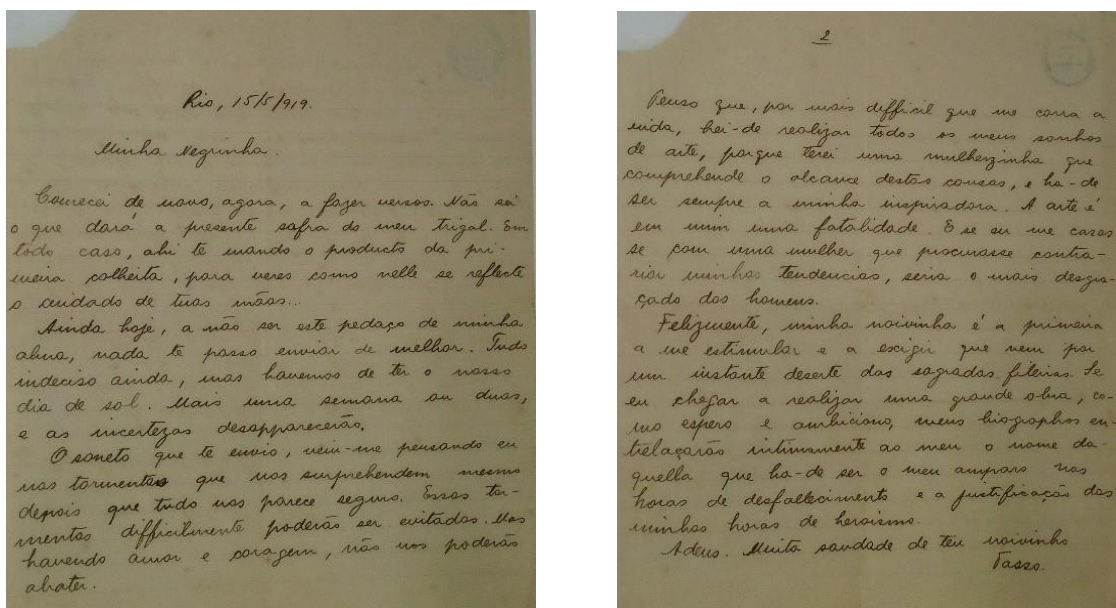 Rio, 15/5/919.
Minha Negrinha.
Comecei de novo, agora, a fazer versos. Não sei
o que dará a presente safra do meu trigal. Em
todo caso, ahi te mando o producto da pri-
meira colheita, para veres como nelle se reflecte
o cuidado de tuas mãos...
Ainda hoje, a não ser este pedaço de minha
alma, nada te posso enviar de melhor. Tudo
indeciso ainda, mas havemos de ter o nosso
dia de sol. Mais uma semana ou duas,
e as incertezas desapparecerão.
O soneto que te envio, veiu-me pensando eu
nas tormentas que nos surprehendem mesmo
depois que tudo nos parece seguro. Essas tor-
mentas difficilmente poderão ser evitadas. Mas
havendo amor e coragem, não nos poderão
abater.
2
Penso que, por mais difficil que me corra a
vida, hei-de realizar todos os meus sonhos
de arte, porque terei uma mulherzinha que
comprehende o alcance destas cousas, e ha-de
ser sempre a minha inspiradora. A arte é
em mim uma fatalidade. E se eu me casas
se com uma mulher que procurasse contra-
riar minhas tendencias, seria o mais desgra-
çado dos homens.
Felizmente, minha noivinha é a primeira
a me estimular e a exigir que nem por
um instante deserte das sagradas fileiras. Se
eu chegar a realizar uma grande obra, co-
mo espero e ambiciono, meus biographos en-
trelaçarão intimamente ao meu o nome da-
quella que ha-de ser o meu amparo nas
horas de desfallecimento e a justificação das
minhas horas de heroismo.
Adeus. Muita saudade de teu noivinho
Tasso.